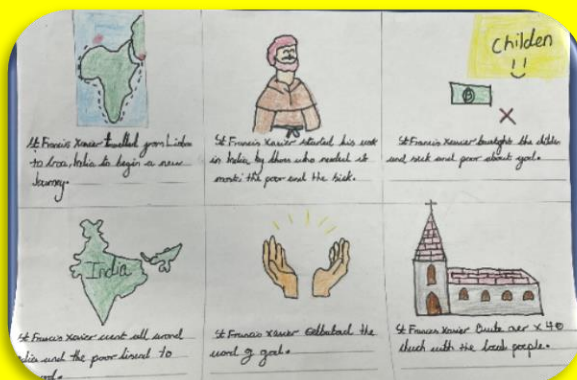 St Francis Xavier travelled from Lisbon
to Goa, India to begin a new
Journey.
St Francis Xavier started his work
in India by them who needed it
most: the poor and the sick.
Childen
St Francis Xavier the childen
and sick and poor about god.
India
St Francis Xavier went all around
and the poor lisned to
St Francis Xavier the
word of god.
St Francis Xavier over x 40
chuch with the local people.